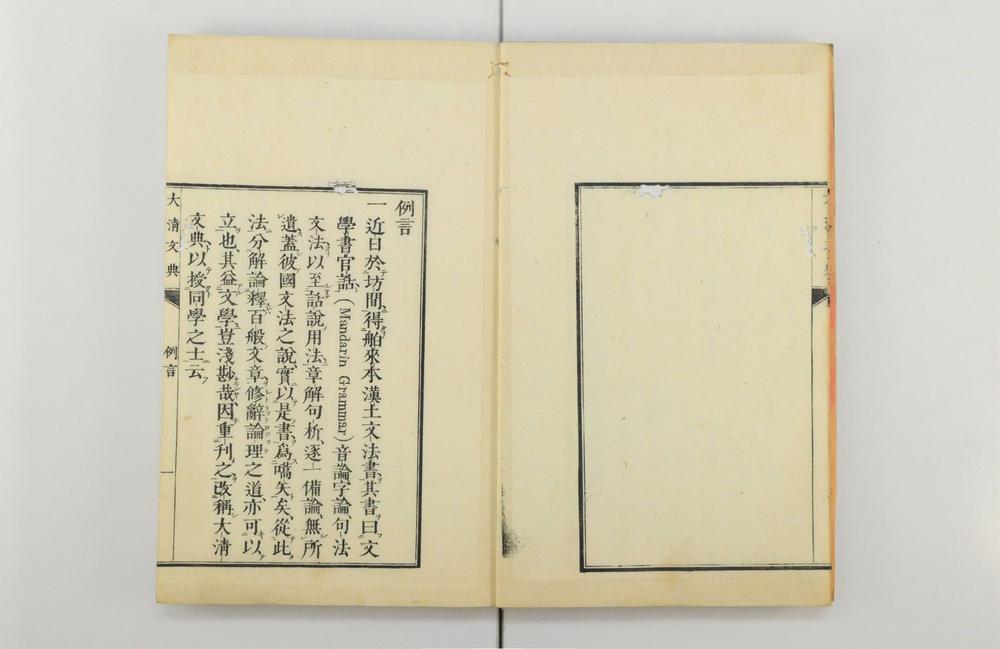 例言
一近日於坊間得舶來本漢土文法書其書曰文
學書官話(Mandarin Grammar)音論字論句法
文法以至話說用法章解句析逐一備論無所
遺蓋彼國文法之說實以是書爲嚆矢矣從此
法分解論釋百般文章修辭論理之道亦可以
立也其益文學豈淺尠哉因重刊之改稱大清
文典以授同學之士云
大清文典
例言
一